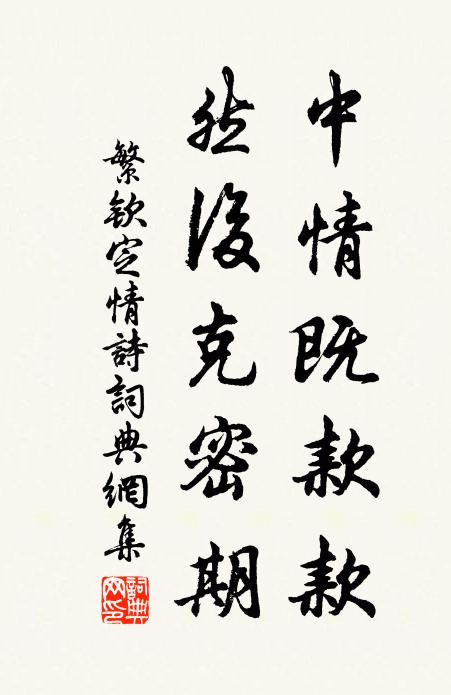 中情既款款
然後克密期
繁欽定情詩詞典網集
詞典網印